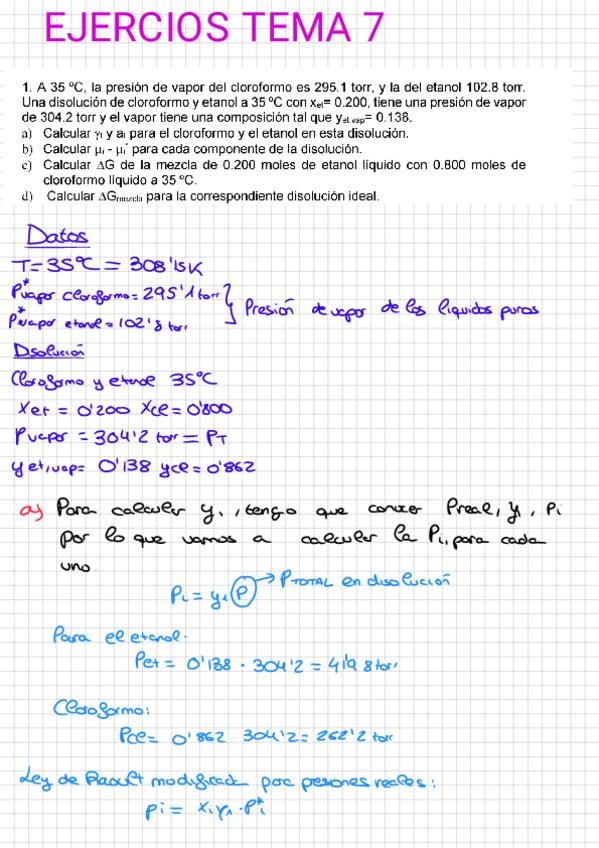 EJERCIOS TEMA 7
1. A 35 ºC, la presión de vapor del cloroformo es 295.1 torr, y la del etanol 102.8 torr.
Una disolución de cloroformo y etanol a 35 ºC con xet= 0.200, tiene una presión de vapor
de 304.2 torr y el vapor tiene una composición tal que yet,vap= 0.138.
a) Calcular γi y ai para el cloroformo y el etanol en esta disolución.
b) Calcular μi - μi* para cada componente de la disolución.
c) Calcular ΔG de la mezcla de 0.200 moles de etanol líquido con 0.800 moles de
cloroformo líquido a 35 ºC.
d) Calcular ΔGmezcla para la correspondiente disolución ideal.
Datos
T=35ºC = 308'15K
P*vapor cloroformo= 295'1 torr
P*vapor etanol = 102'8 torr
} Presión de vapor de los líquidos puros
Dsolución
Cloroformo y etanol 35ºC
Xet = 0'200 Xcl= 0'800
Pvapor = 304'2 torr = PT
yet,vap= 0'138 ycl= 0'862
a) Para calcular γi, tengo que conocer Preal, yi, Pi
por lo que vamos a calcular la Pi, para cada
uno.
Pi = yi P → PTOTAL en disolución
Para el etanol:
Pet = 0'138 · 304'2 = 41'98 torr
Cloroformo:
Pcl= 0'862 · 304'2 = 262'2 torr
Ley de Raoult modificada para presiones reales:
pi = xiγi · Pi*